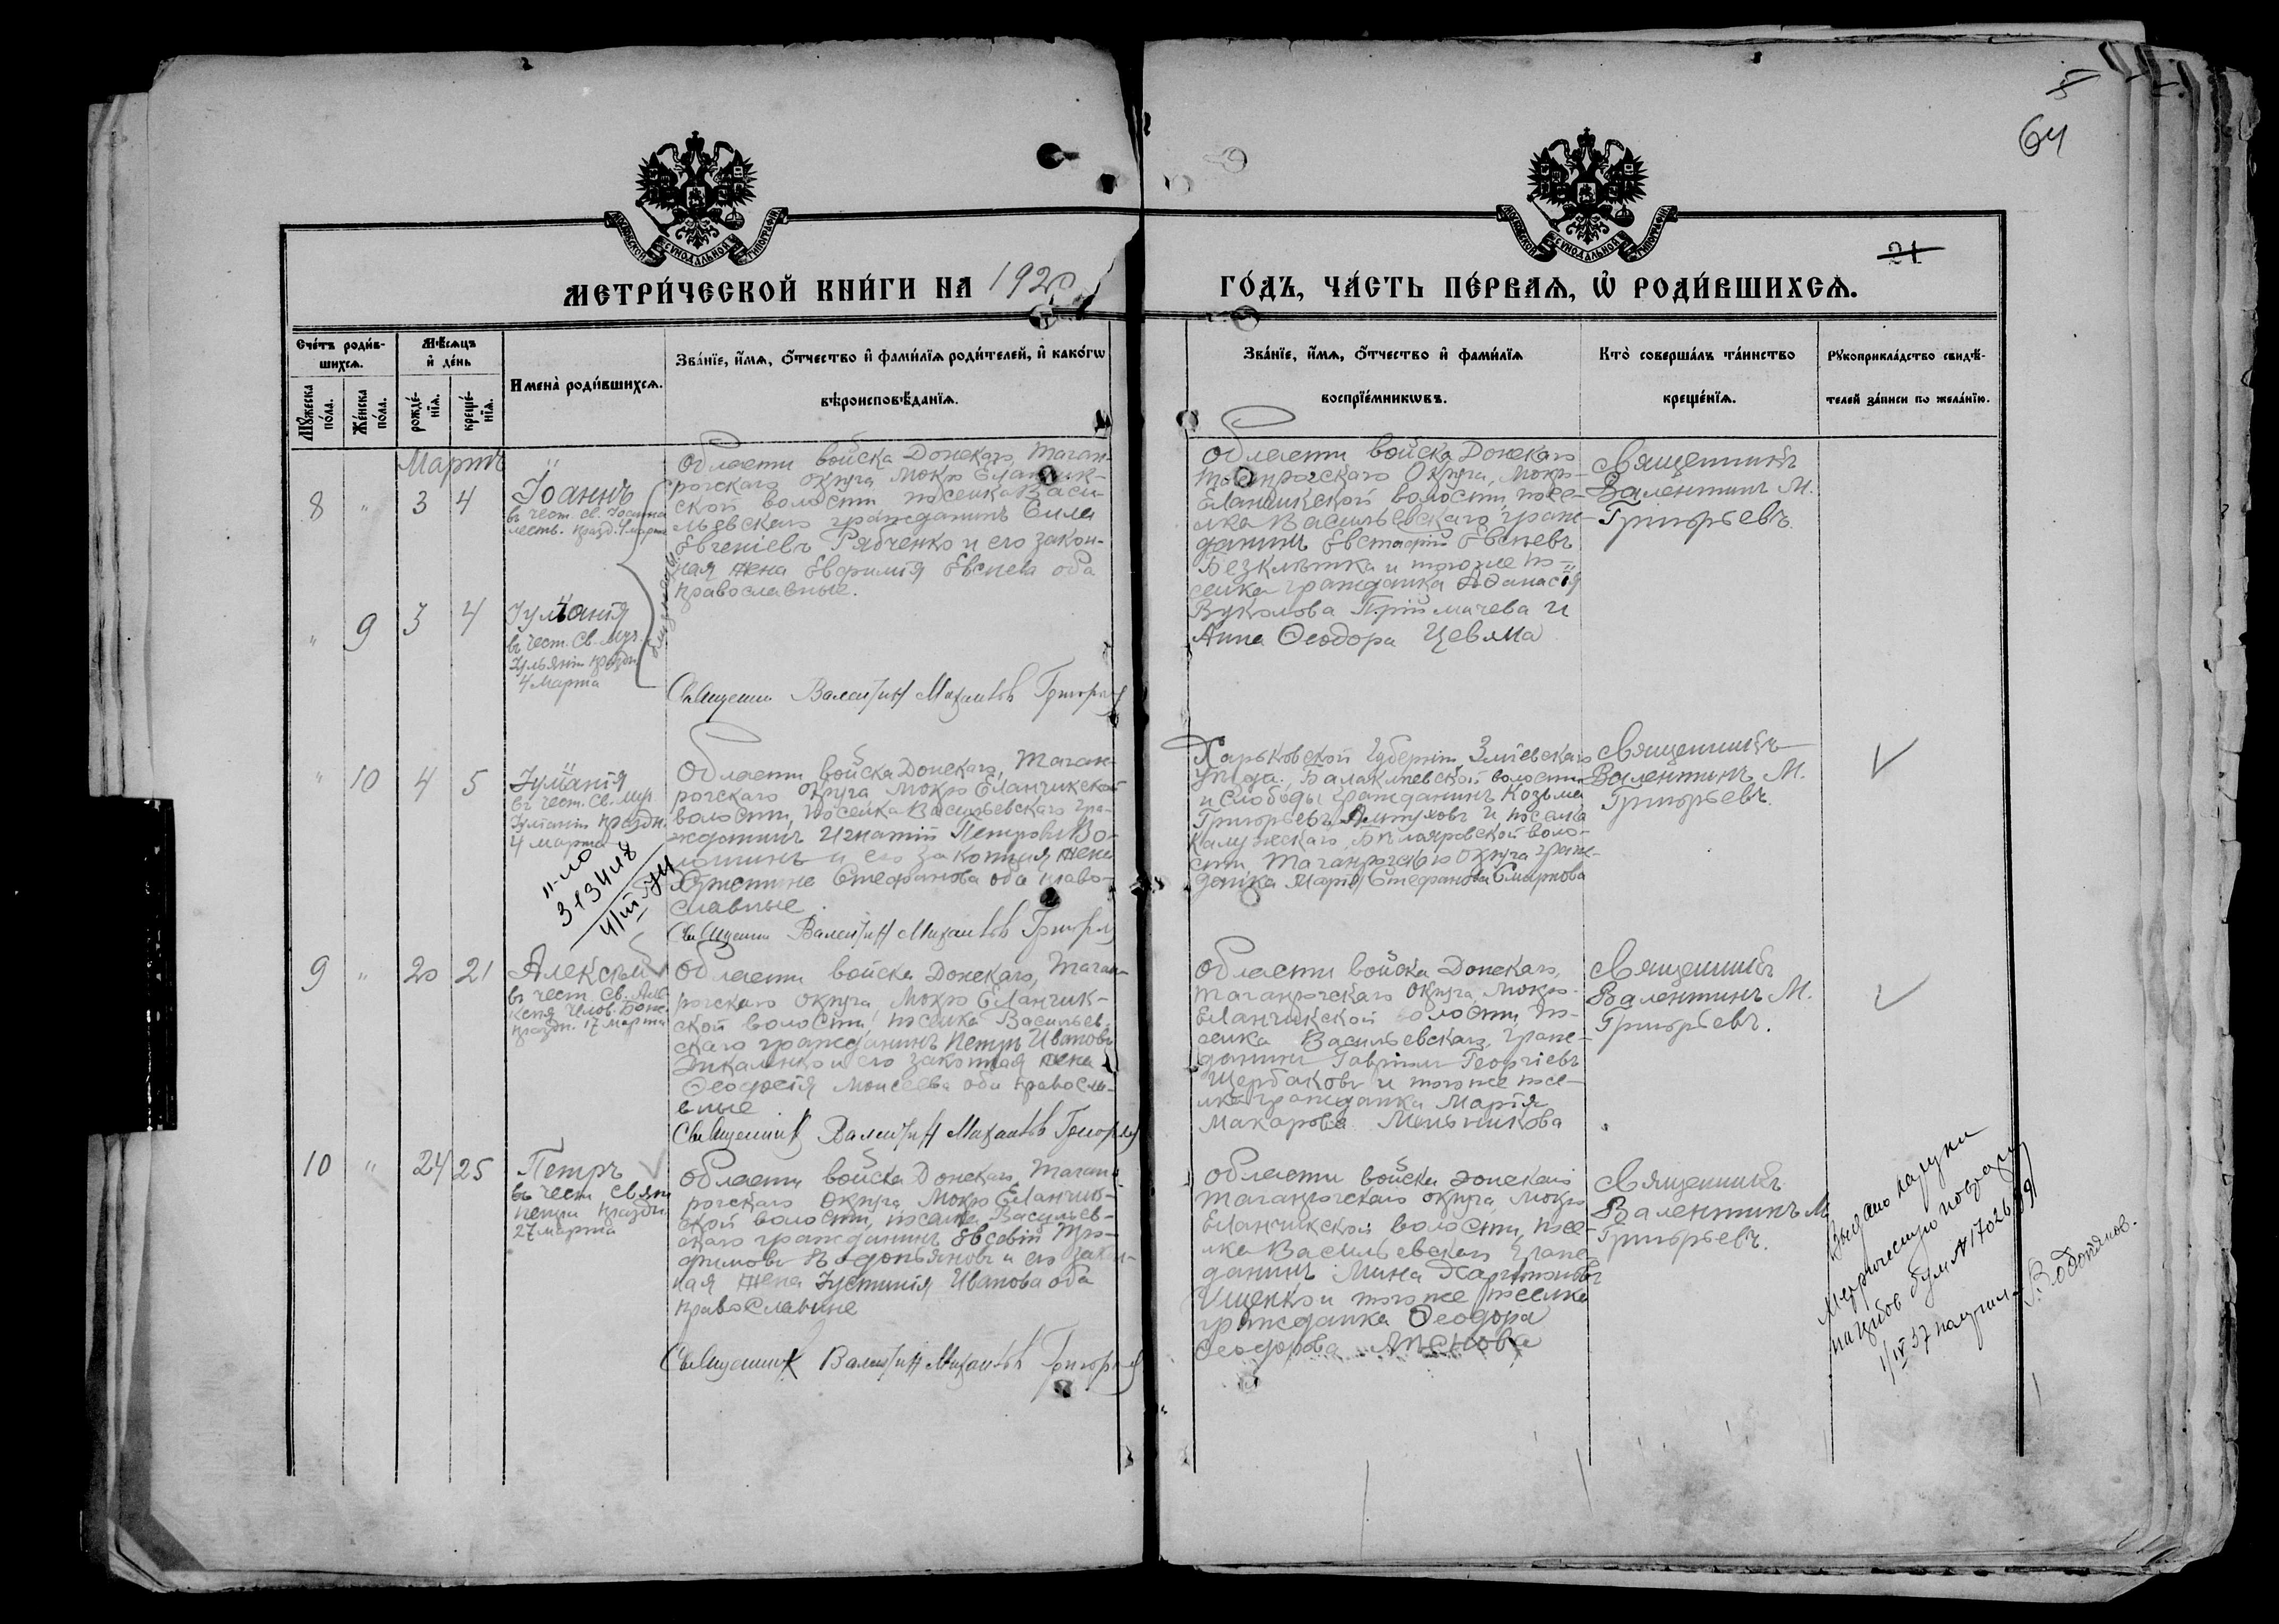 64
МОСКОВСКОЙ СѴНОДАЛЬНОЙ ТИПОГРАФІИ
МОСКОВСКОЙ СѴНОДАЛЬНОЙ ТИПОГРАФІИ
21
МЕТРИ́ЧЕСКОЙ КНИ́ГИ НА 1920
ГО́ДЪ, ЧА́СТЬ ПЕ́РВАѦ, Ѡ҆ РОДИ́ВШИХСѦ.
Сче́тъ роди́в-
шихсѧ.
Мꙋ́жеска
по́ла.
Же́нска
по́ла.
Мѣ́сѧцъ
и҆ де́нь
рожде́-
нїѧ.
креще́-
нїѧ.
Имена̀ роди́вшихсѧ.
Зва́нїе, и҆́мѧ, ѻ҆́тчество и҆ фами́лїѧ роди́телей, и҆ како́гѡ
вѣроисповѣ́данїѧ.
Зва́нїе, и҆́мѧ, ѻ҆́тчество и҆ фами́лїѧ
воспрїе́мникѡвъ.
Кто̀ соверша́лъ та́инство
креще́нїѧ.
Рꙋкоприкла́дство свидѣ́-
телей за́писи по жела́нїю.
Мартъ
8 " 3 4
Іоаннъ
въ чест. св. Іоанна
праздн. 4 марта
Области войска Донскаго, Таган-
рогскаго округа Мокро Еланчик-
ской волости поселка Васи-
льевскаго гражданинъ Сила
Евгеніевъ Рябченко и его закон-
ная жена Евфимія Евсиева оба
православные.
Области войска Донскаго
Таганрогскаго Округа, Мокро-
Еланчикской волости, посе-
лка Васильевскаго, граж-
данинъ Евстафій Евсиевъ
Безклѣтка и того же по-
селка гражданка Афанасія
Вуколова Приймачева и
Анна Ѳеодора Цевма
Священникъ
Валентинъ М.
Григорьевъ.
" 9 3 4
Іуліанія
въ чест. Св. Муч.
Іульяніи праздн.
4 марта
близнецы
Священник Валентин Михаилов Григорьев
" 10 4 5
Іуліанія
въ чест. Св. Муч.
Іуліаніи праздн.
4 марта
Области войска Донскаго, Таган-
рогскаго округа Мокро Еланчикской
волости, поселка Васильевскаго гра-
жданинъ Игнатій Петровъ Во-
лошинъ и его законная жена
Христина Стефанова оба право-
славные.
Священник Валентин Михаилов Григорьев
Харьковской Губерніи, Зміевскаго
уѣзда, Балаклеевской волости
и Слободы гражданинъ Козьма
Григорьевъ Алтуховъ и поселка
Калужскаго, Бѣлояровской воло-
сти, Таганрогскаго округа граж-
данка Марія Стефанова Смирнова
Священникъ
Валентинъ М.
Григорьевъ.
9 " 20 21
Алексѣй
въ чест. Св. Але-
ксѣя Чѣлов. Бож.
праздн. 17 марта
Области войска Донскаго, Таган-
рогскаго округа, Мокро Еланчик-
ской волости, поселка Васильев-
скаго гражданинъ Петръ Ивановъ
Дикаленко и его законная жена
Ѳеодосія Моисеева оба правосла-
вные
Священник Валентин Михаилов Григорьев
Области войска Донскаго,
Таганрогскаго округа, Мокро-
Еланчикской волости, по-
селка Васильевскаго, граж-
данинъ Гавріилъ Георгіевъ
Щербаковъ и того же посе-
лка гражданка Марія
Макарова Мельникова
Священникъ
Валентинъ М.
Григорьевъ.
10 " 24 25
Петръ
въ чест Свят
Петра праздн.
27 марта
Области войска Донскаго Таган-
рогскаго округа Мокро Еланчик-
ской волости, поселка Васильев-
скаго гражданинъ Евсевій Тро-
фимовъ Водопьяновъ и его закон-
ная жена Іустинія Иванова оба
православные
Священник Валентин Михаилов Григорьев
Области войска Донскаго
Таганрогскаго округа, Мокро
Еланчикской волости, посе-
лка Васильевскаго граж-
данинъ Мина Харитоновъ
Ищенко и того же поселка
гражданка Ѳеодора
Ѳеодорова
Священникъ
Валентинъ М.
Григорьевъ.
Выдано на руки
1/IV 37 получил Водопянов.